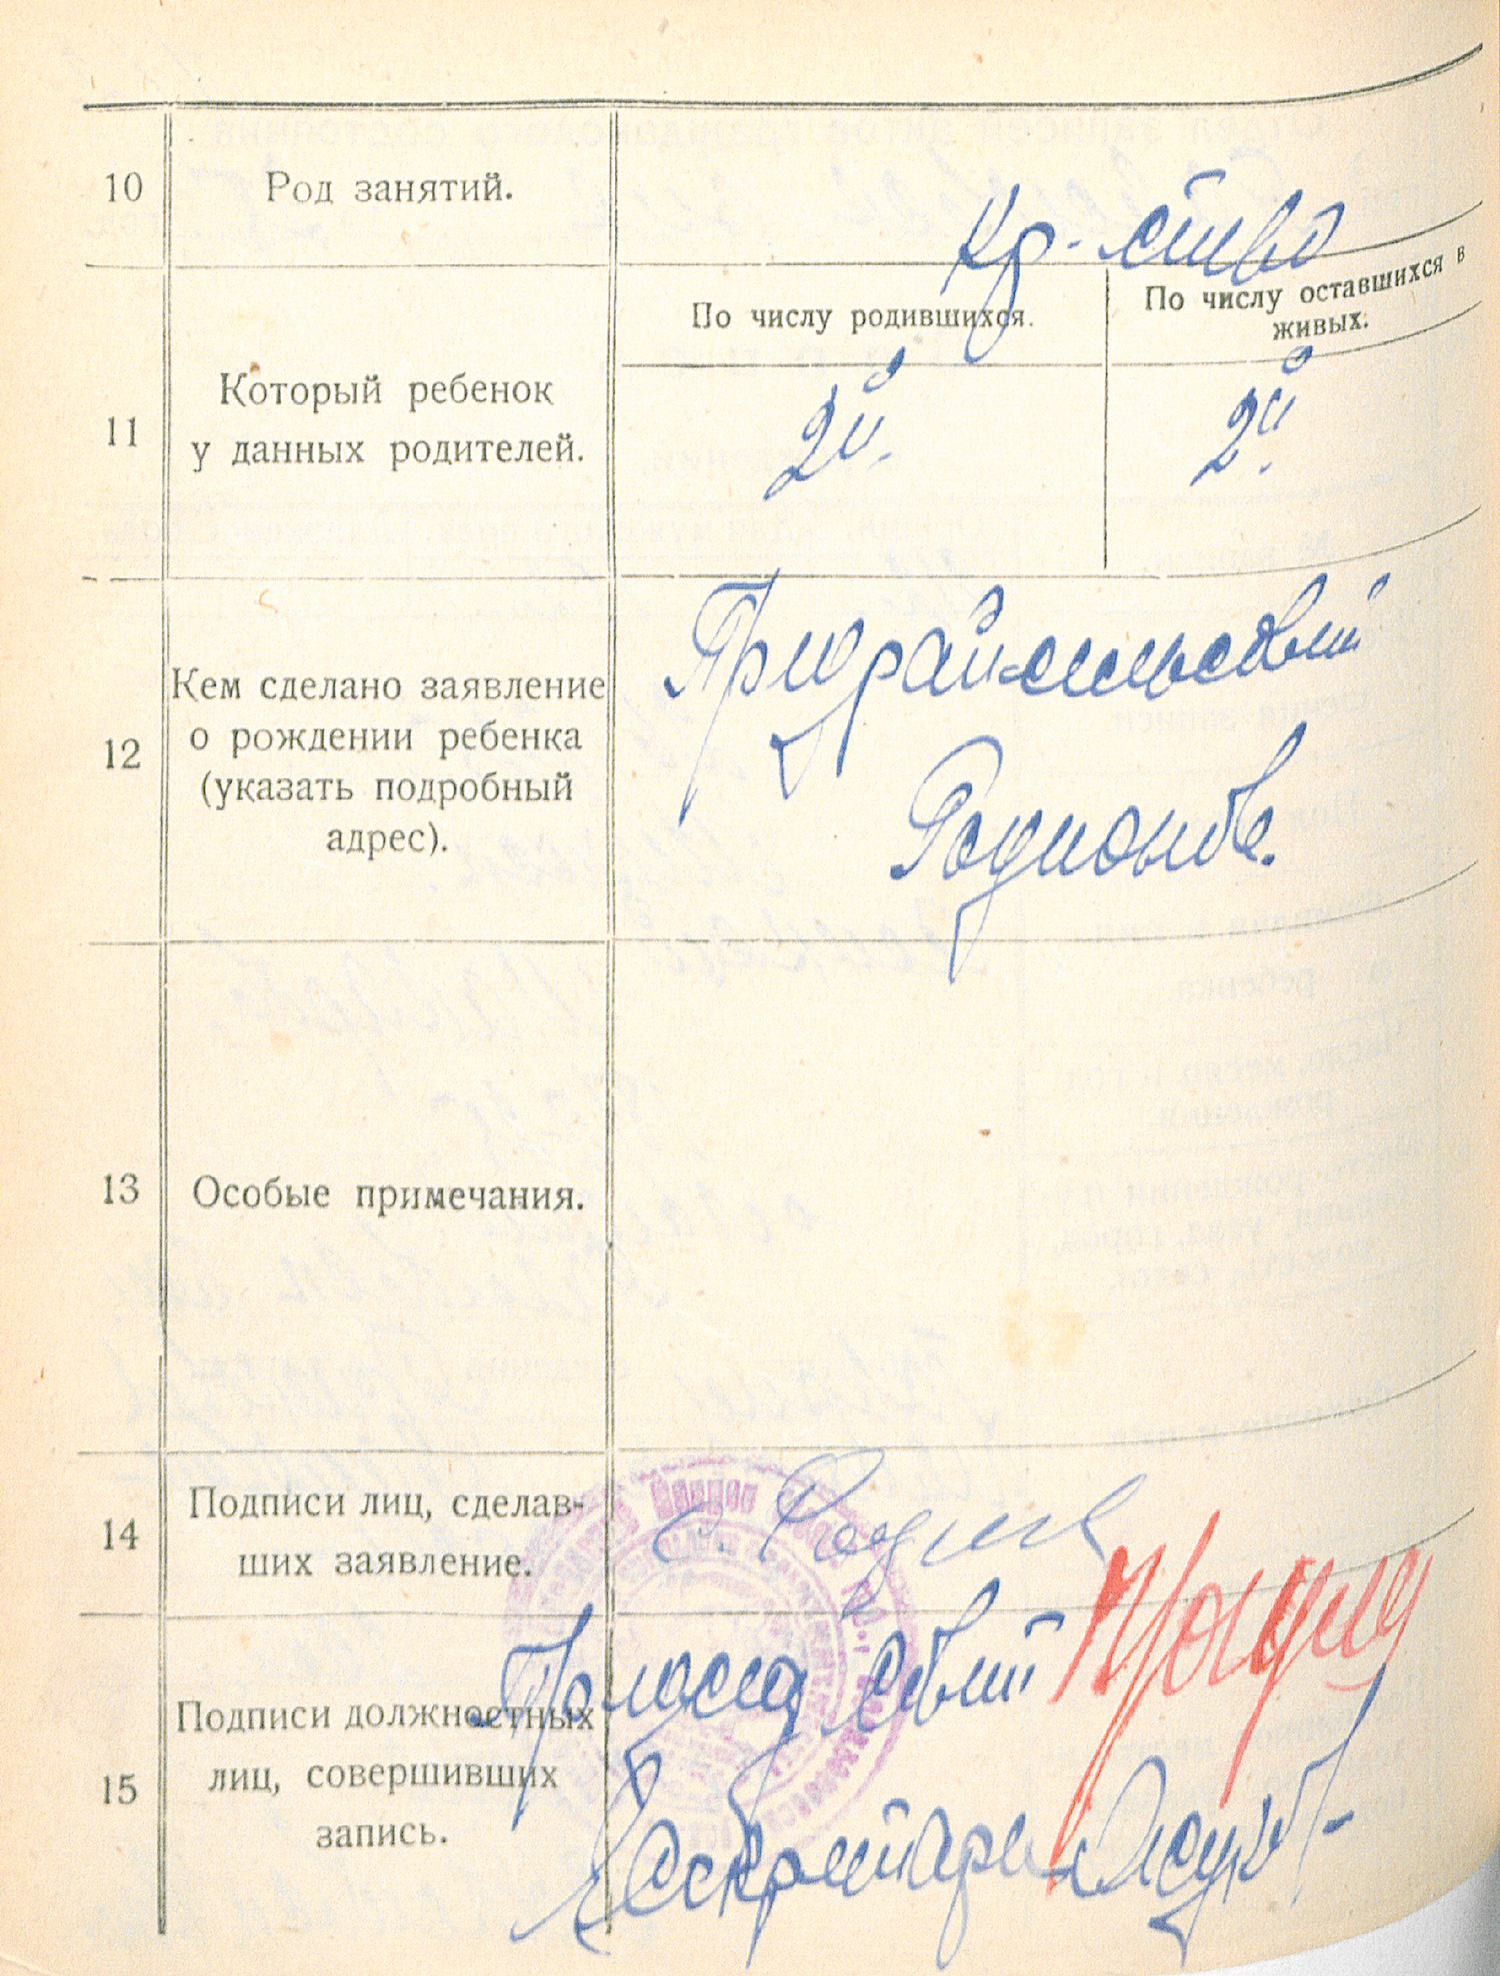 10
Род занятий.
Кр-ство
11
Который ребенок
у данных родителей.
По числу родившихся.
По числу оставшихся в
живых.
2й.
2й.
12
Кем сделано заявление
о рождении ребенка
(указать подробный
адрес).
Родионов.
13
Особые примечания.
14
Подписи лиц, сделав-
ших заявление.
15
Подписи должностных
лиц, совершивших
запись.
Секретарь